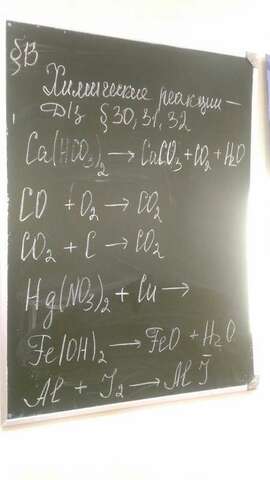 §В
Химические реакции –
Д/з § 30, 31, 32
Ca(HCO₃)₂ → CaCO₃ + CO₂ + H₂O
CO + O₂ → CO₂
CO₂ + C → CO₂
Hg(NO₃)₂ + Cu →
Fe(OH)₂ → FeO + H₂O
Al + J₂ → Al J